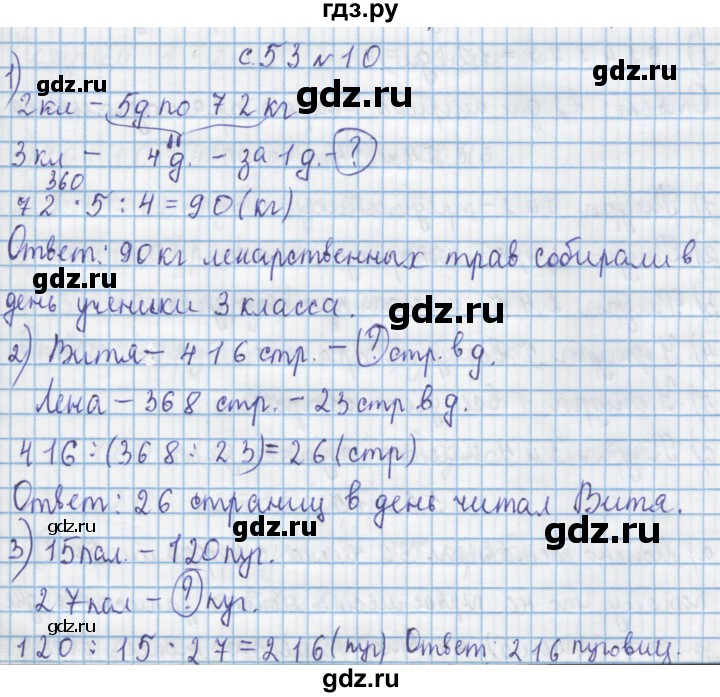 гдз.ру
с.53 №10
1)
2кл – 5д. по 72кг
3кл – 4д. – за 1д. – ?
360
72 · 5 : 4 = 90(кг)
Ответ: 90кг лекарственных трав собирали в
день ученики 3 класса.
2) Витя – 416 стр. – ? стр. в д.
Лена – 368 стр. – 23 стр в д.
416 : (368 : 23) = 26(стр)
Ответ: 26 страниц в день читал Витя.
3) 15пал. – 120пуг.
27пал – ? пуг.
120 : 15 · 27 = 216(пуг) Ответ: 216 пуговиц.
gdz.ru
gdz.ru
gdz.ru
gdz.ru
gdz.ru
gdz.ru
gdz.ru
gdz.ru
gdz.ru
gdz.ru
gdz.ru
gdz.ru
gdz.ru